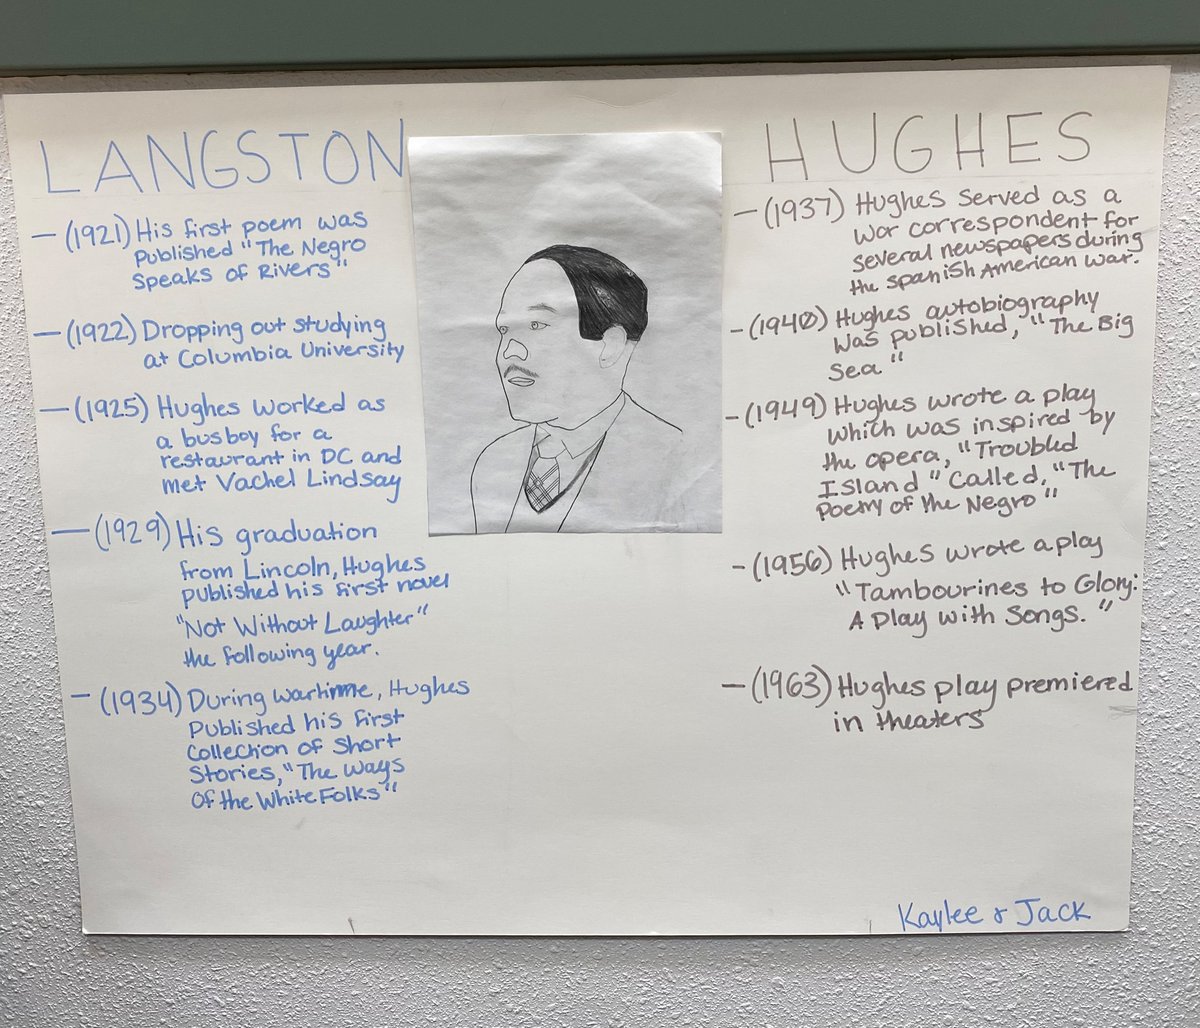 LANGSTON HUGHES
— (1921) His first poem was
published "The Negro
Speaks of Rivers"
— (1922) Dropping out studying
at Columbia University
— (1925) Hughes worked as
a busboy for a
restaurant in DC and
met Vachel Lindsay
— (1929) His graduation
from Lincoln, Hughes
published his first novel
"Not Without Laughter"
the following year.
— (1934) During wartime, Hughes
published his first
collection of short
Stories, "The Ways
Of the White Folks"
— (1937) Hughes served as a
war correspondent for
several newspapers during
the spanish American war.
- (1940) Hughes autobiography
was published, "The Big
Sea"
- (1949) Hughes wrote a play
which was inspired by
the opera, "Troubled
Island" called, "The
Poetry of the Negro"
- (1956) Hughes wrote a play
"Tambourines to Glory:
A Play with Songs."
— (1963) Hughes play premiered
in theaters
Kaylee & Jack